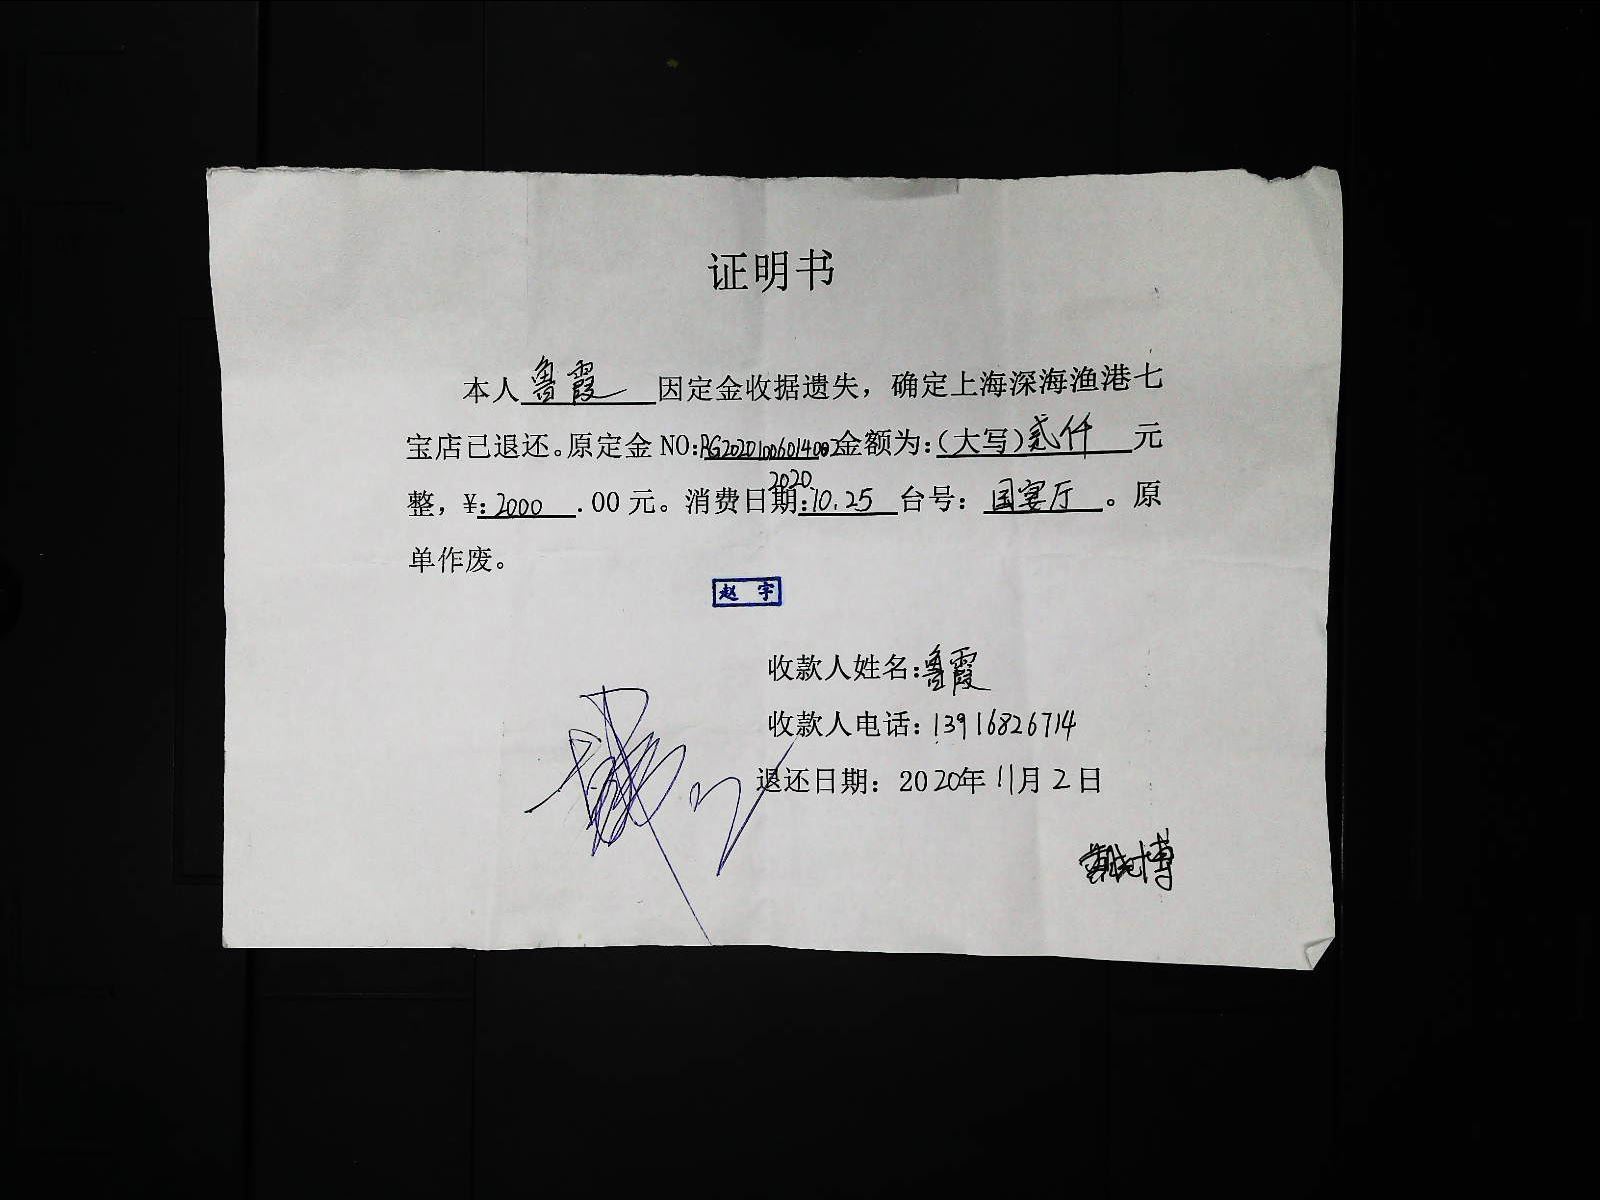 证明书
本人鲁霞因定金收据遗失，确定上海深海渔港七
宝店已退还。原定金 NO:RG20201006014002金额为:(大写)贰仟 元
整，¥:2000 .00 元。消费日期:2020.10.25 台号：国宴厅 。原
单作废。
赵 宇
收款人姓名:鲁霞
收款人电话:13916826714
退还日期：2020年11月2日